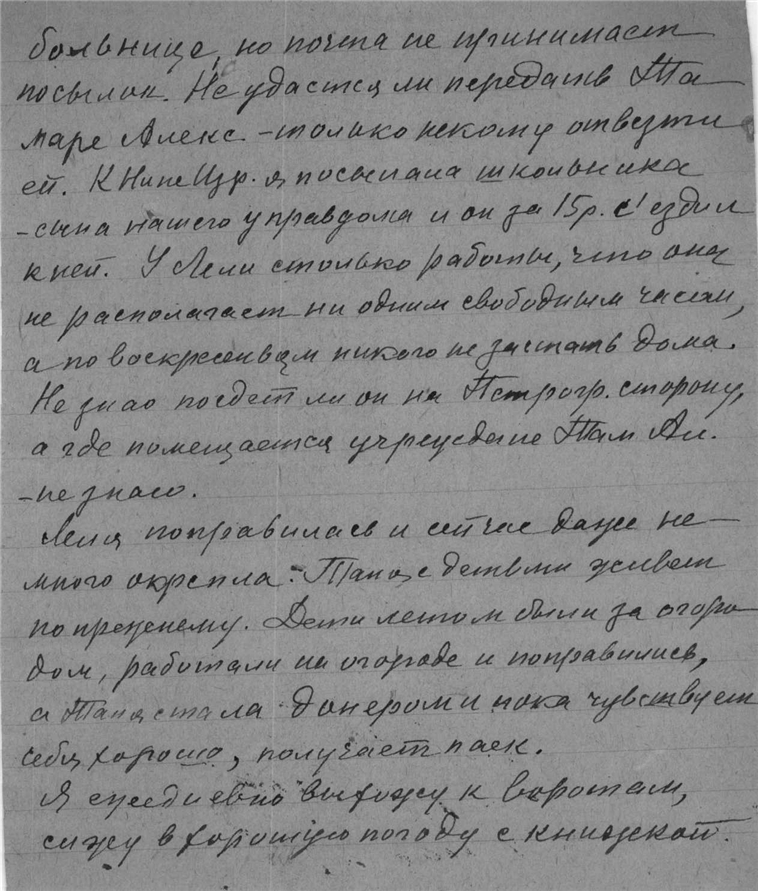 больнице, но почта не принимает
посылок. Не удастся ли передать Та-
маре Алекс - только некому отвезти
ей. К Нине Изр. я посылала школьника
- сына нашего управдома и он за 15р. с'ездил
к ней. У Лели столько работы, что она
не располагает ни одним свободным часом,
а по воскресеньям никого не застать дома.
Не знаю поедет ли он на Петрогр. сторону,
а где помещается учреждение Там Ал.
- не знаю.
Леля поправилась и сейчас даже не-
много окрепла. Таня с детьми живет
по прежнему. Дети летом были за огоро
дом, работали на огороде и поправились,
а Таня стала донером и пока чувствует
себя хорошо, получает паек.
Я ежедневно выхожу к воротам,
сижу в хорошую погоду с книжкой.